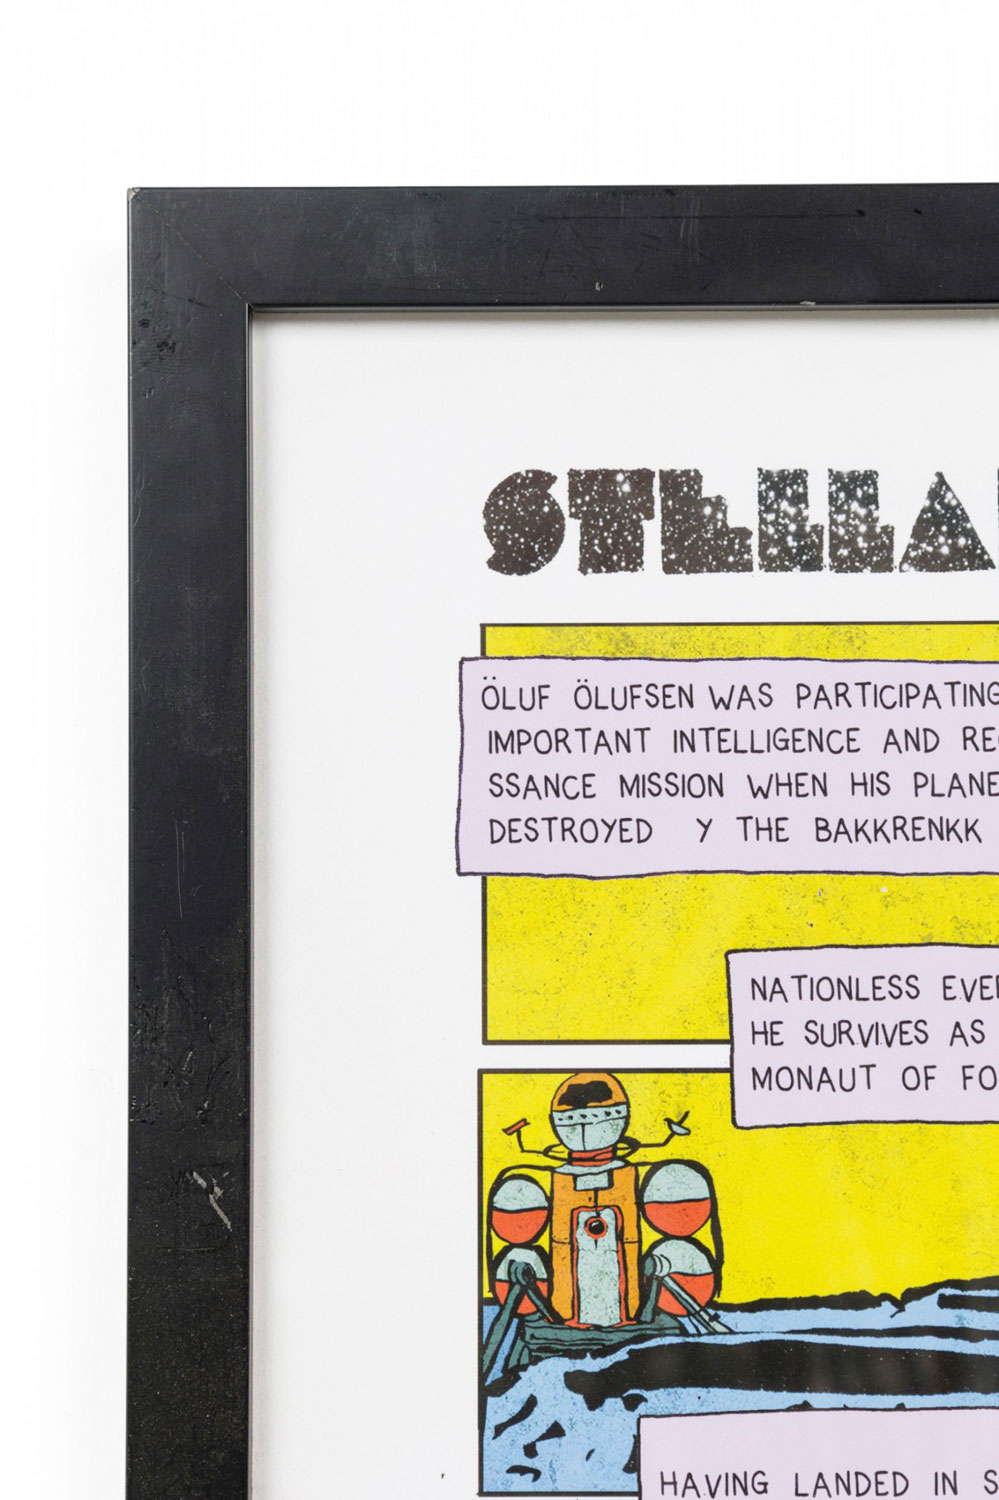 STELLA
ÖLUF ÖLUFSEN WAS PARTICIPATING
IMPORTANT INTELLIGENCE AND REC
SSANCE MISSION WHEN HIS PLANE
DESTROYED Y THE BAKKRENKK
NATIONLESS EVER
HE SURVIVES AS
MONAUT OF FO
HAVING LANDED IN S